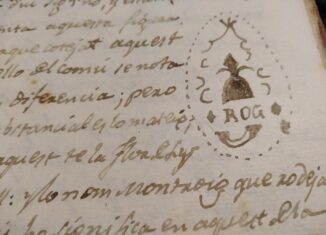 enta aquesta figura
que cotejat aquest
llo el comú se nota
diferencia; pero
substancial es lo mateix;
aquest te la flor de lis
ROG
y lo nom Montroig que rodeja
significa en aquest de la